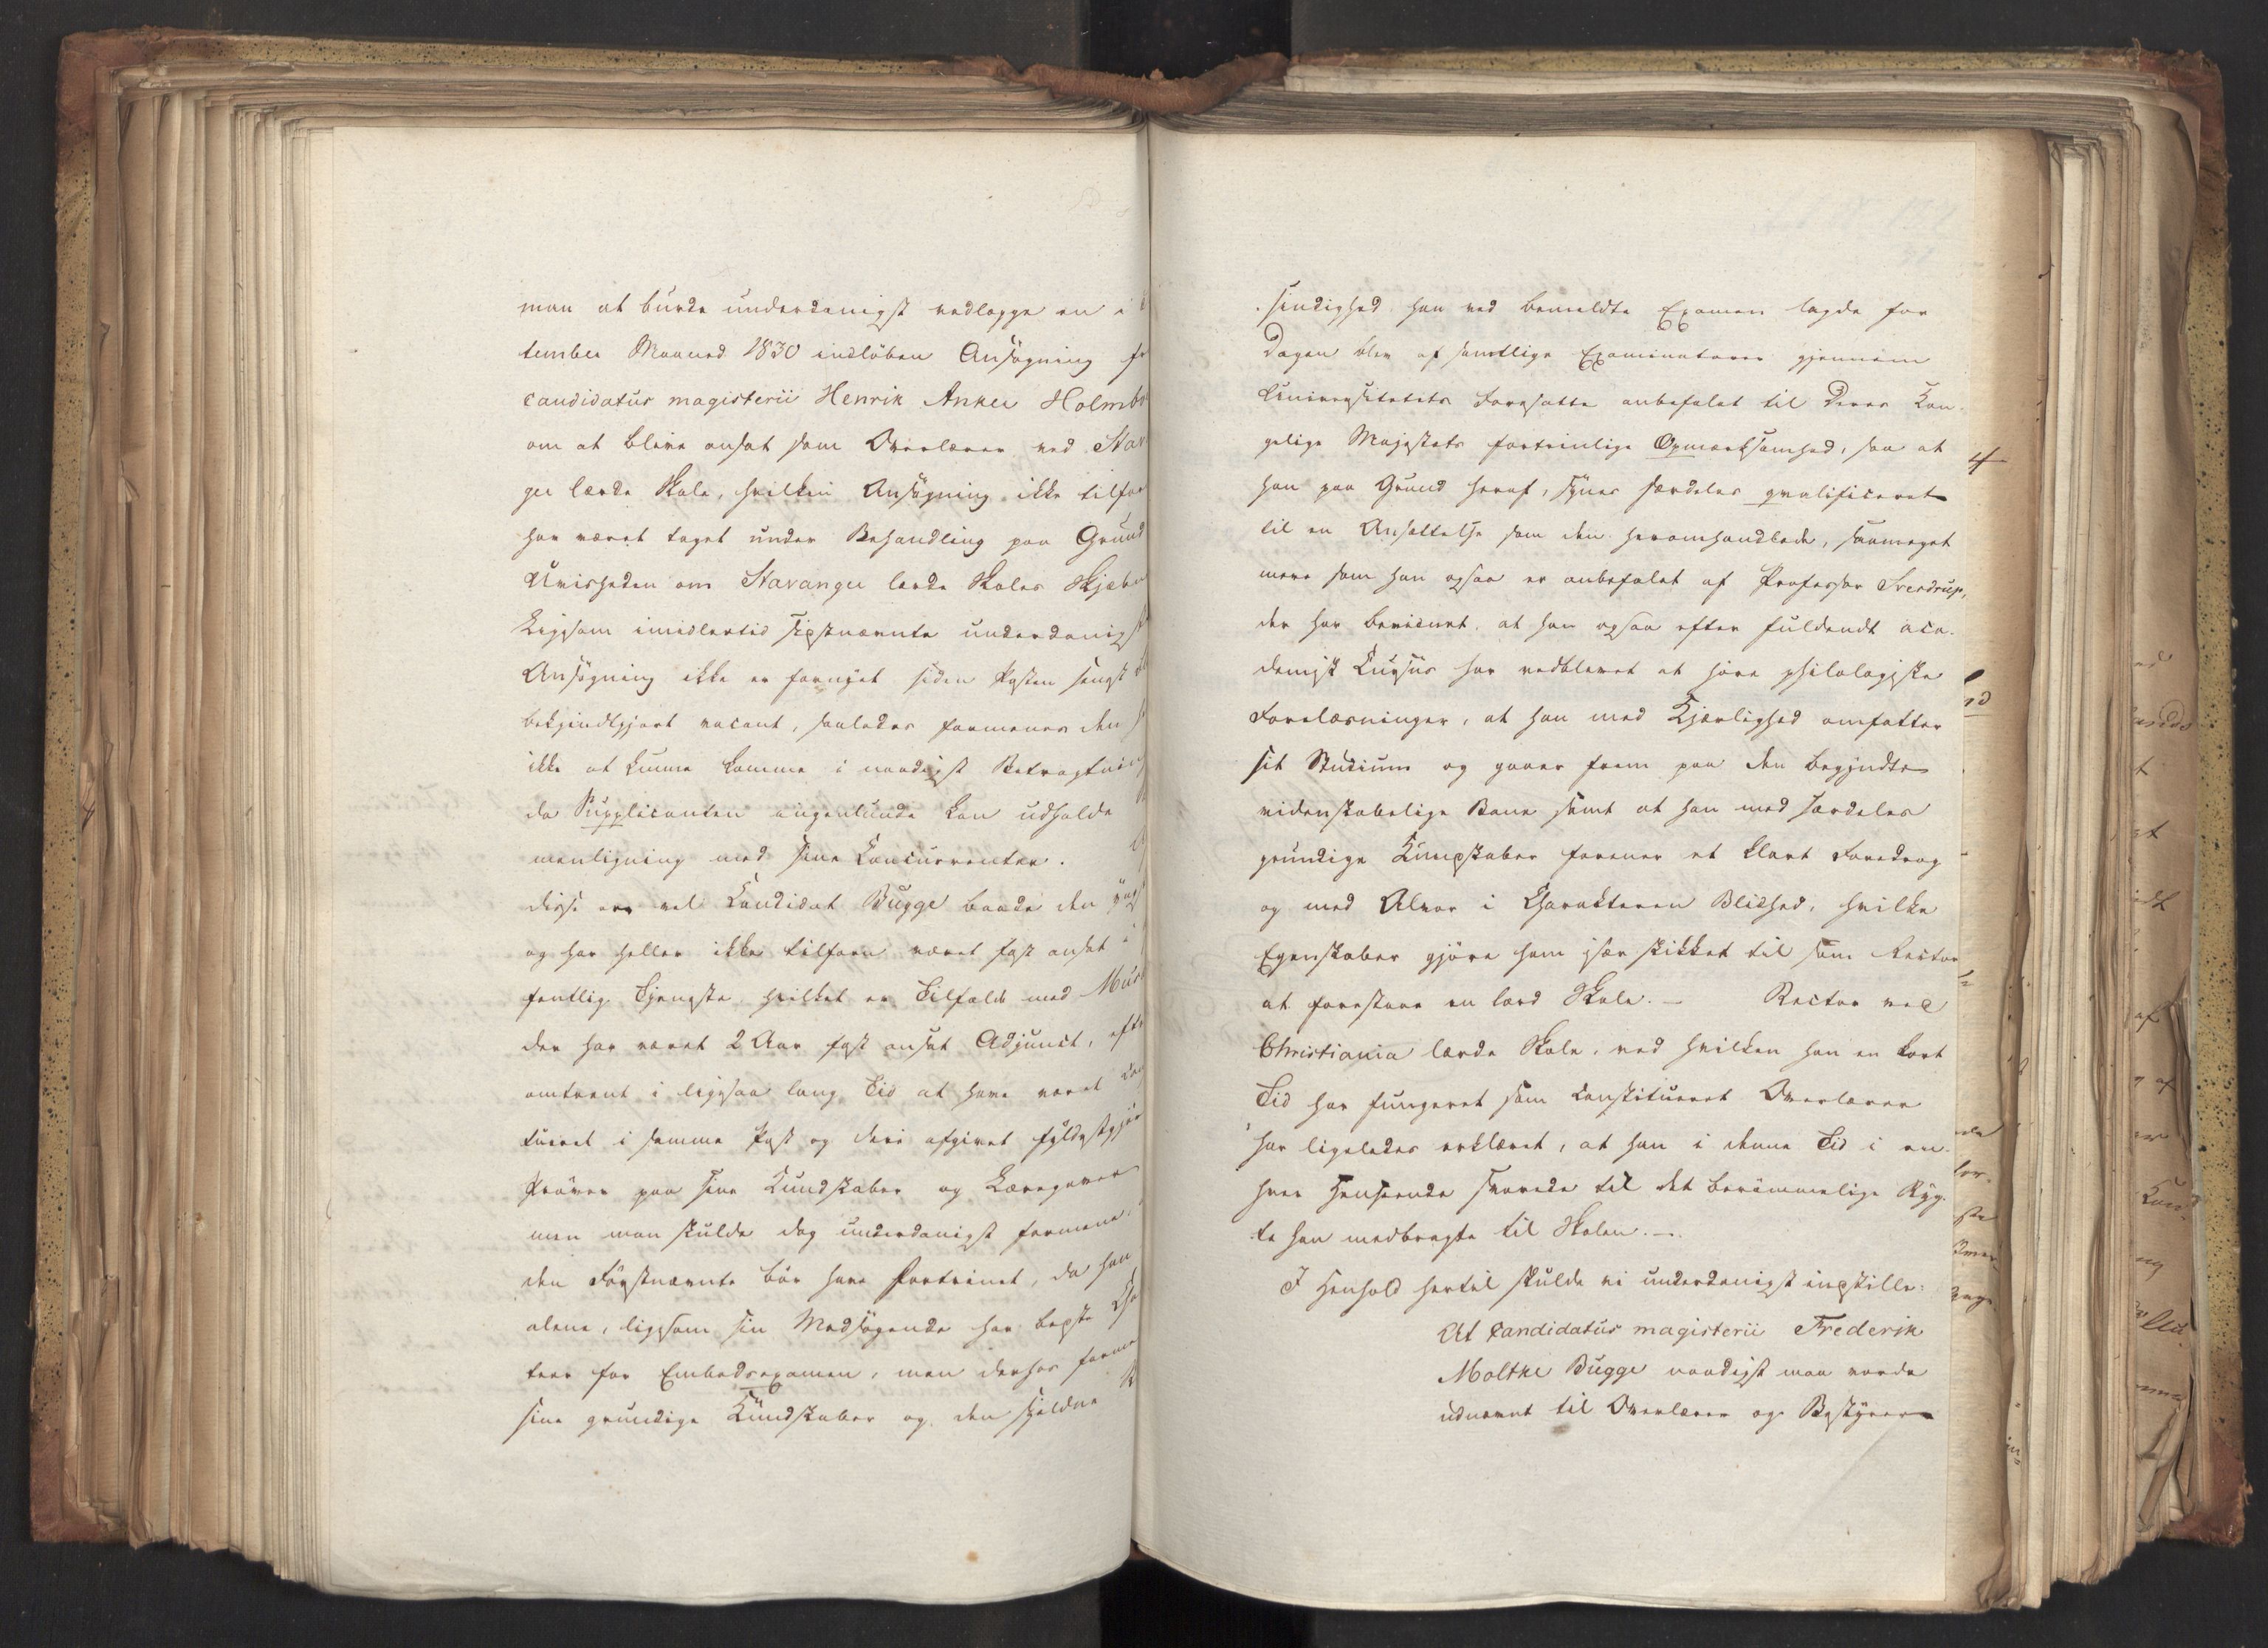 man at burde underdanigst vedlægge en i
tember Maaned 1830 indløben Ansøgning fr
candidatus magisterii Henrik Anker Holmbo
om at blive ansat som Overlærer ved Stav
ger lærde Skole, hvilken Ansøgning ikke tilfor
har været taget under Behandling paa Grund
Uvisheden om Stavanger lærde Skoles Skjæbn
Ligesom imidlertid sidstnævnte underdanigst
Ansøgning ikke er fornyet siden Posten sengst
bekjendtgjort vacant, saaledes formenes den
ikke at kunne komme i naadigst Betragtning
da Supplicanten ingenlunde kan udholde
menligning med sine Concurrenter.
disse er vel Candidat Bugge baade den yngst
og har heller ikke tilforn været fast ansat i
fentlig Tjeneste hvilket er Tilfælde med Mus
der har været 2 Aar fast ansat Adjunct, efte
omtrent i ligesaa lang Tid at have været con
tueret i samme Post og deri afgivet fyldestgjør
Prøver paa sine Kundskaber og Læregaver
men man skulde dog underdanigst formene,
den Førstnævnte bør have Fortrinet, da han
alene, ligesom sin Medsøgende har bedste Cha
teer for Embedsexamen, men derhos forme
sine grundige Kundskaber og den sjeldne
sindighed han ved bemeldte Examen lagde for
Dagen blev af samtlige Examinatorer gjennem
Universitetets Foresatte anbefalet til Deres Kon-
gelige Majestæts fortrinlige Opmærksomhed, saa at
han paa Grund heraf, synes særdeles qvalificeret
til en Ansættelse som den heromhandlede, saameget
mere som han ogsaa er anbefalet af Professor Sverdrup,
der har bevidnet, at han ogsaa efter fuldendt aca-
demisk Cursus har vedblevet at høre philologiske
Forelæsninger, at han med Kjærlighed omfatter
sit Studium og gaaer frem paa den begyndte
videnskabelige Bane samt at han med særdeles
grundige Kundskaber forener et klart Foredrag
og med Alvor i Charakteren Blidhed, hvilke
Egenskaber gjøre ham især skikket til som Rector
at forestaae en lærd Skole. – Rector ved
Christiania lærde Skole, ved hvilken han en kort
Tid har fungeret som constitueret Overlærer
har ligeledes erklæret, at han i denne Tid i en-
hver Henseende svarede til det berømmelige Ryg-
te han medbragte til Skolen. –
I Henhold hertil skulde vi underdanigst indstille:
At Candidatus magisterii Frederik
Moltke Bugge naadigst maa vorde
udnævnt til Overlærer og Bestyrer